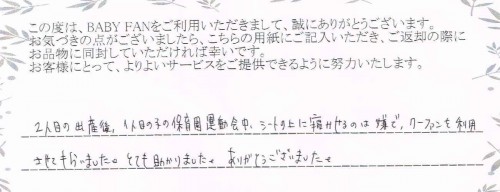 この度は、BABY FANをご利用いただきまして、誠にありがとうございます。
お気づきの点がございましたら、こちらの用紙にご記入いただき、ご返却の際に
お品物に同封していただければ幸いです。
お客様にとって、よりよいサービスをご提供できるように努力いたします。
2人目の出産後、1人目の子の保育園運動会中、シートの上に寝かせるのは嫌で、クーファンを利用
させてもらいました。とても助かりました。ありがとうございました。